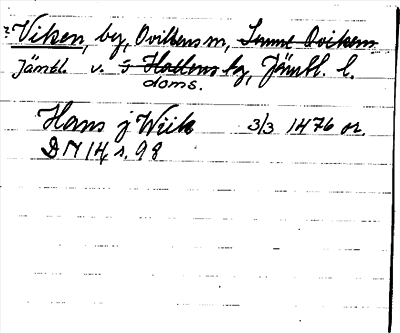 ? Viken, by, Ovikens m, Sunne Ovikens
Jämtl. v. s Hallens kg, Jämtl. l.
doms.
Hans j Wiik 3/3 1476 or.
DN 14, s. 98